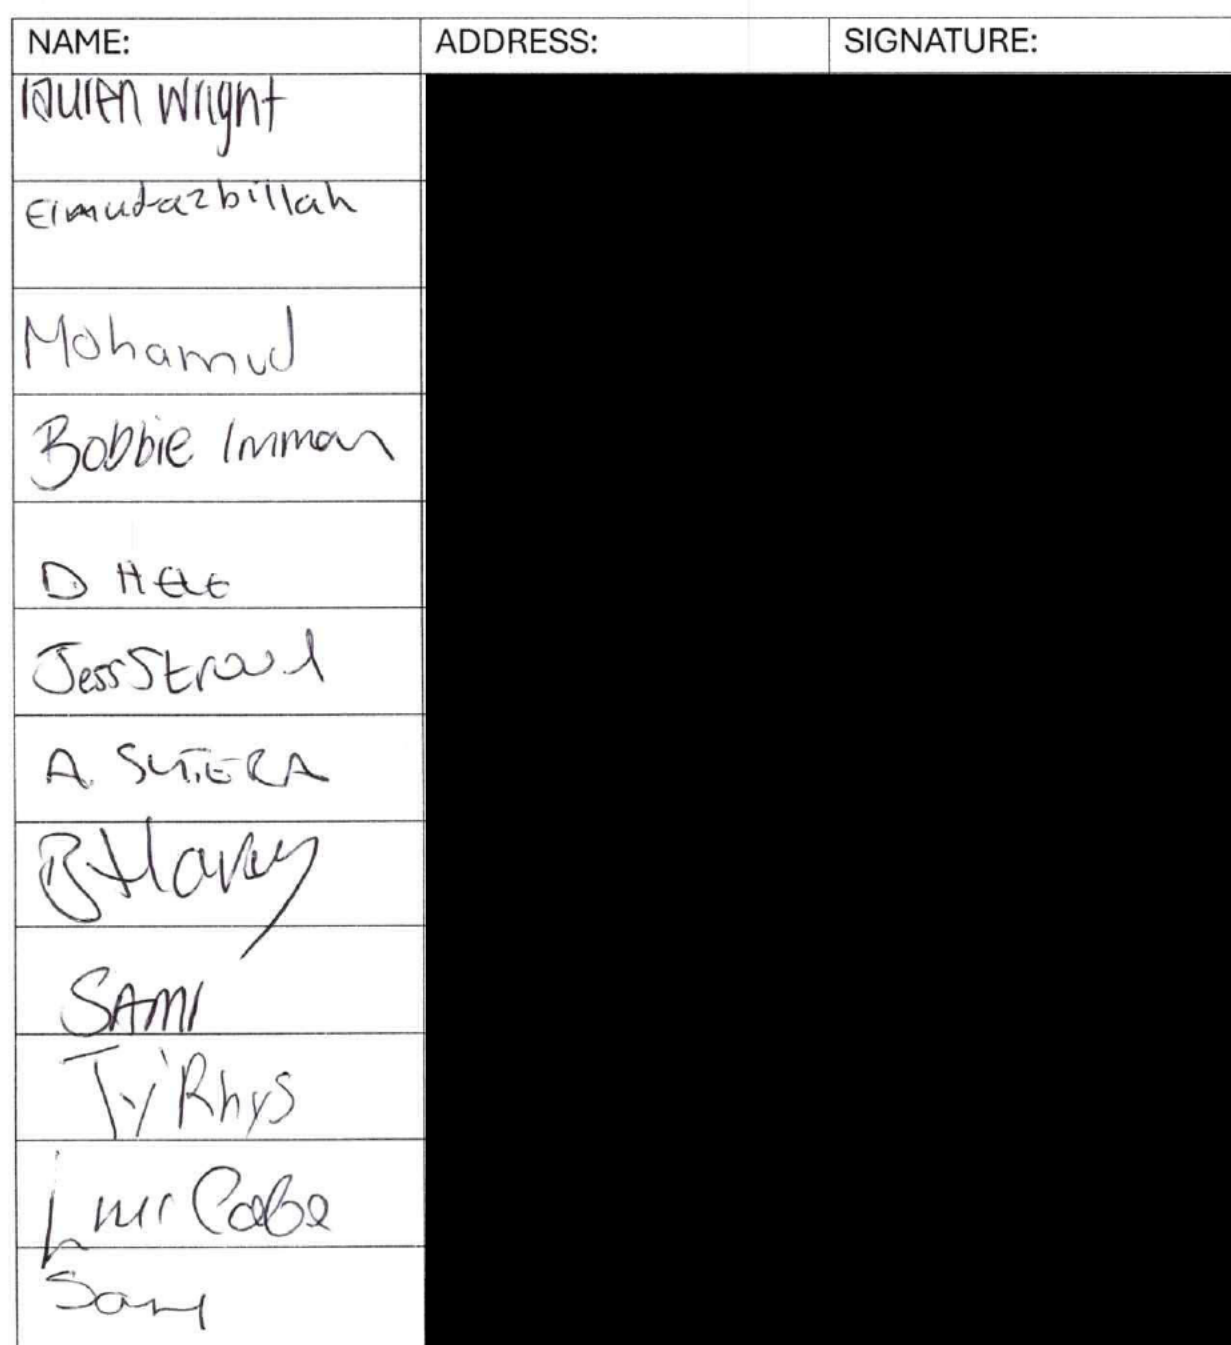 NAME: ADDRESS: SIGNATURE:
lauren wright
Elmutazbillah
Mohamud
Bobbie Inman
D HELE
Jess Stroud
A. SUTERA
B Harvey
SAMI
Ty'Rhys
L McCabe